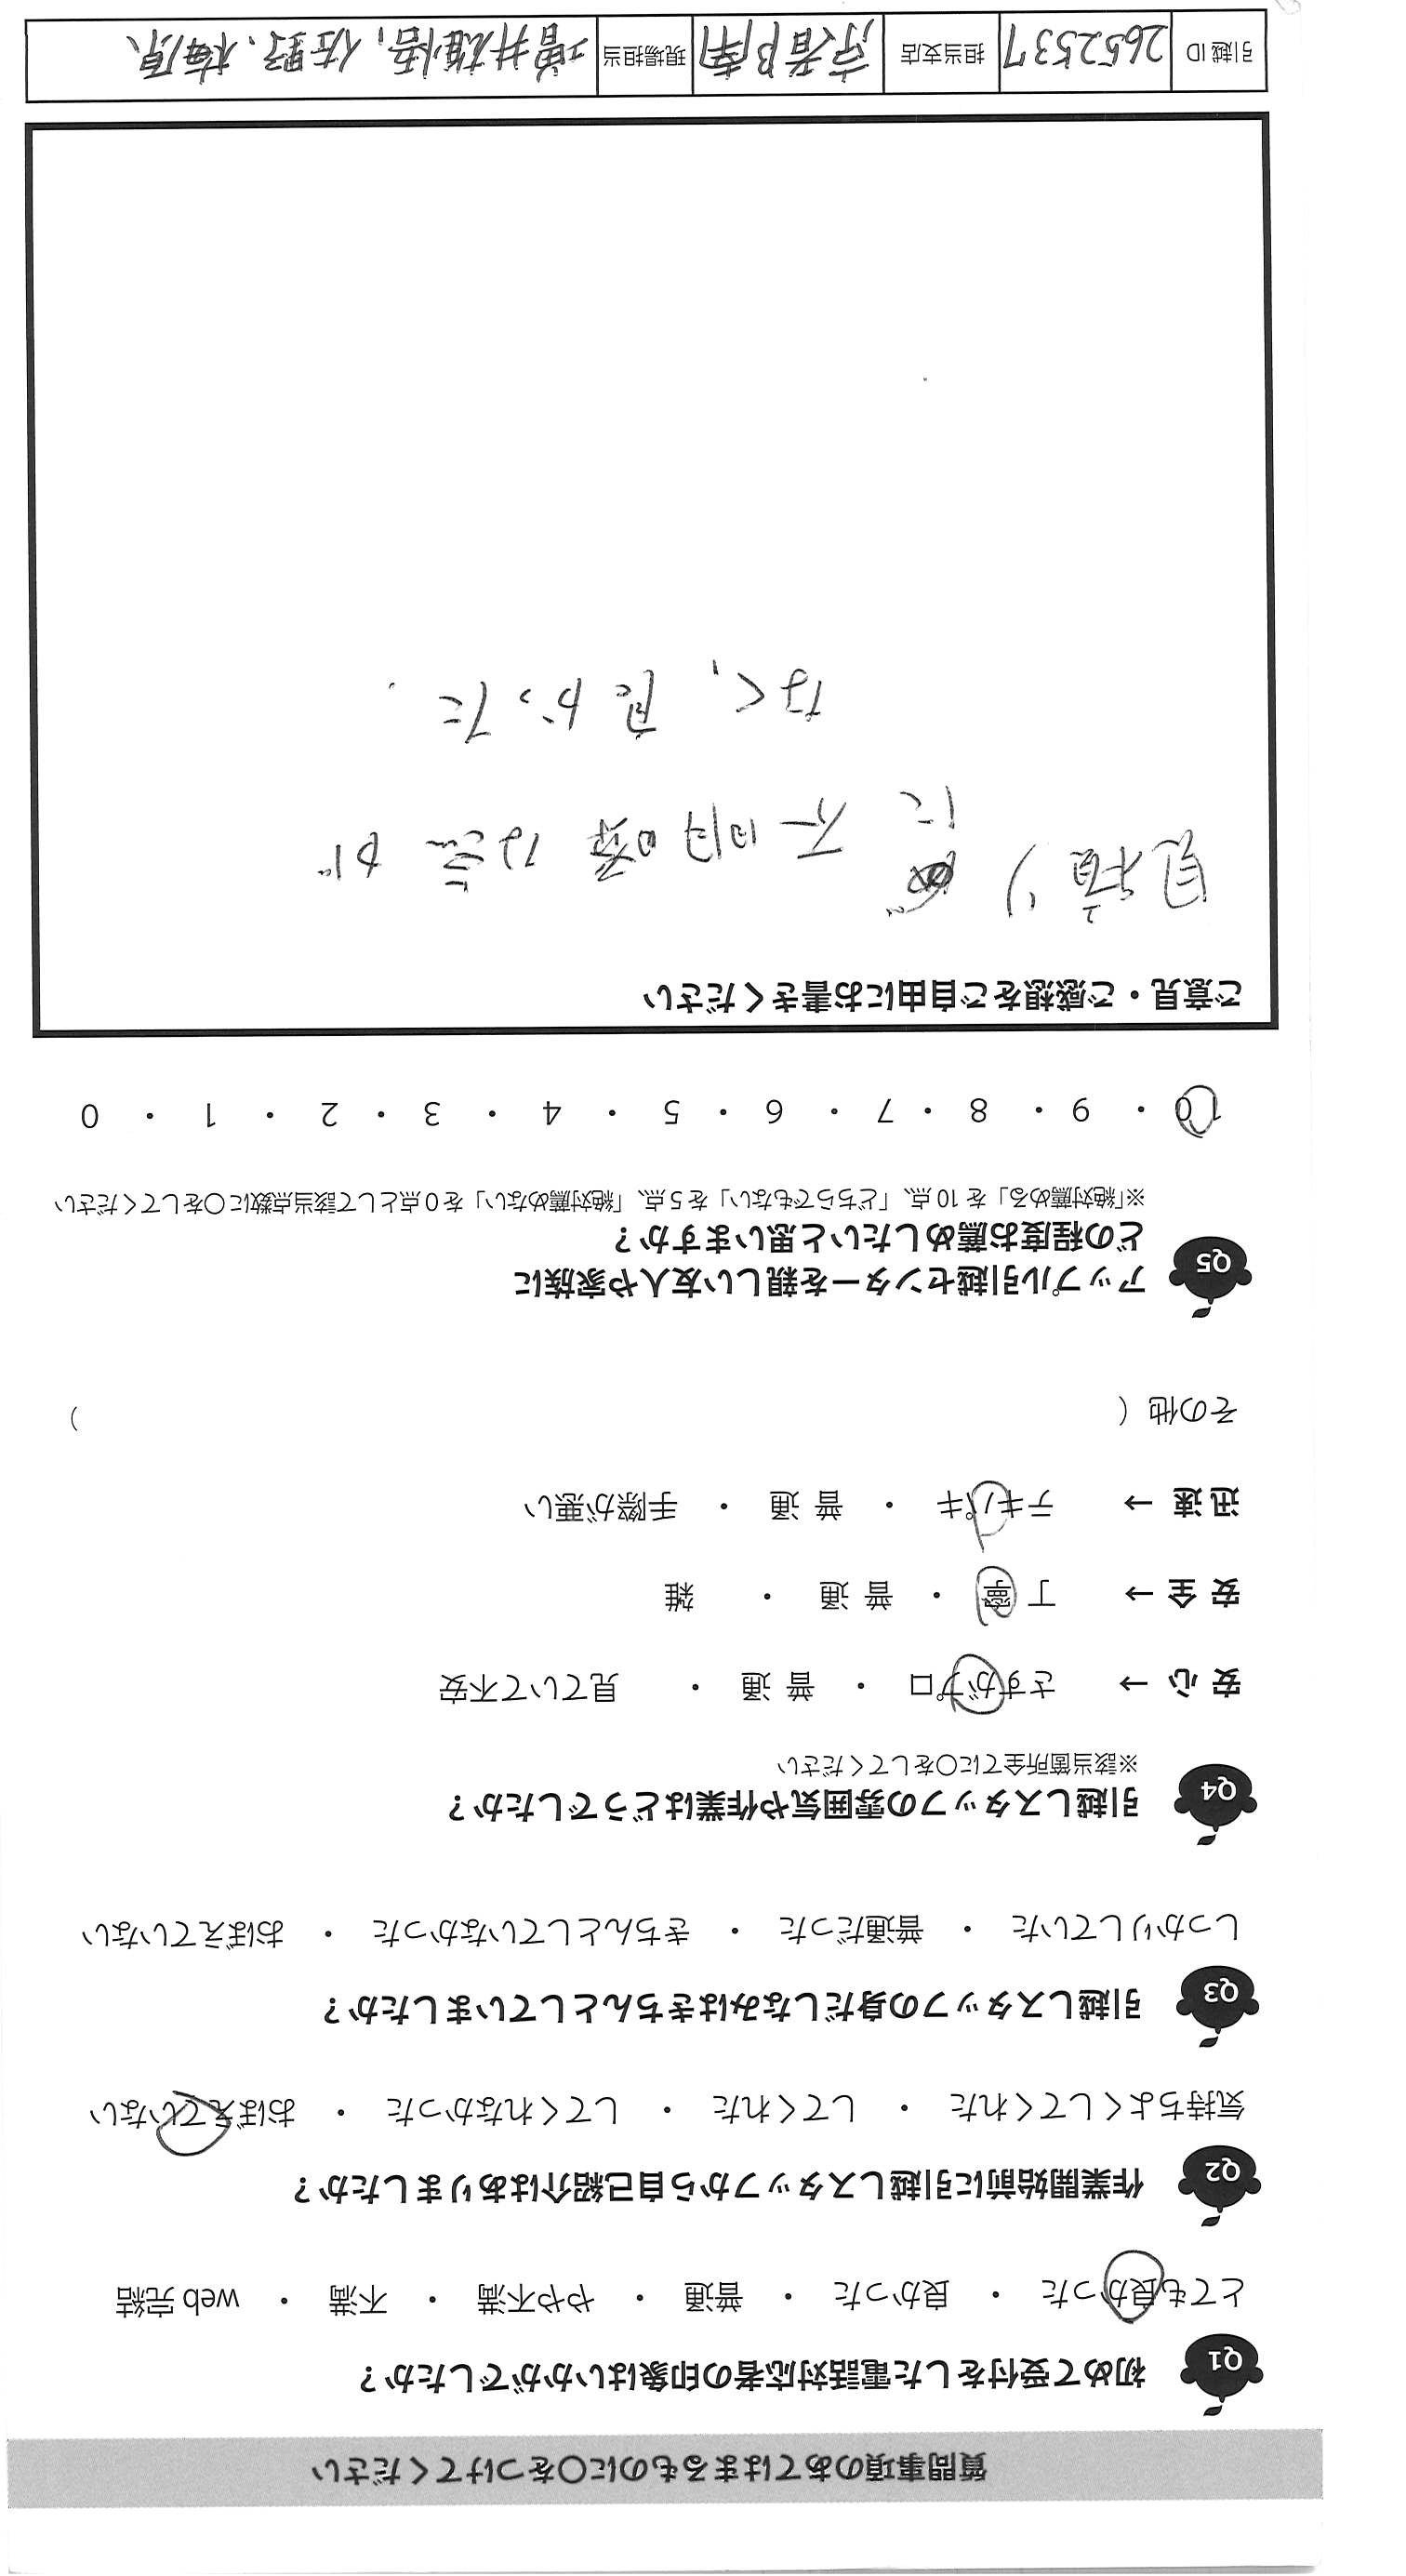 質問事項のあてはまるものに〇をつけてください
Q1 初めて受付をした電話対応者の印象はいかがでしたか？
とても良かった ・ 良かった ・ 普通 ・ やや不満 ・ 不満 ・ web 完結
Q2 作業開始前に引越しスタッフから自己紹介はありましたか？
気持ちよくしてくれた ・ してくれた ・ してくれなかった ・ おぼえていない
Q3 引越しスタッフの身だしなみはきちんとしていましたか？
しっかりしていた ・ 普通だった ・ きちんとしていなかった ・ おぼえていない
Q4 引越しスタッフの雰囲気や作業はどうでしたか？
※該当箇所全てに〇をしてください
安 心 → さすがプロ ・ 普 通 ・ 見ていて不安
安 全 → 丁 寧 ・ 普 通 ・ 雑
迅 速 → テキパキ ・ 普 通 ・ 手際が悪い
その他（ ）
Q5 アップル引越センターを親しい友人や家族に
どの程度お薦めしたいと思いますか？
※「絶対薦める」を 10 点、「どちらでもない」を 5 点、「絶対薦めない」を 0 点として該当点数に〇をしてください
10 ・ 9 ・ 8 ・ 7 ・ 6 ・ 5 ・ 4 ・ 3 ・ 2 ・ 1 ・ 0
ご意見・ご感想をご自由にお書きください
見積りに不明瞭な点が
なく、良かった.
引越 ID 2652537 担当支店 京都南 現場担当 増井雄悟、佐野、梅原